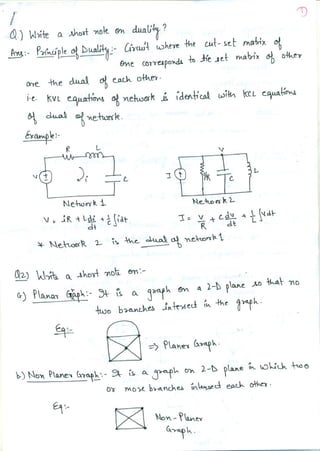 1
Q) Write a short note on duality?
Ans:- Principle of Duality:- Circuit where the cut-set matrix of
one corresponds to tie set matrix of other
are the dual of each other.
i.e. KVL equations of network is identical with KCL equations
of dual of network.
Example:-
R L
V i C
V
I R C L
Network 1
Network 2
V = iR + L di/dt + 1/C ∫idt
I = V/R + C dv/dt + 1/L ∫Vdt
* Network 2 is the dual of network 1
Q2) Write a short note on:-
a) Planar Graph:- It is a graph on a 2-D plane so that no
two branches intersect in the graph.
Eg:-
=> Planer Graph.
b) Non Planer Graph:- It is a graph on 2-D plane in which two
or more branches intersect each other.
Eg:-
Non-Planer
Graph.